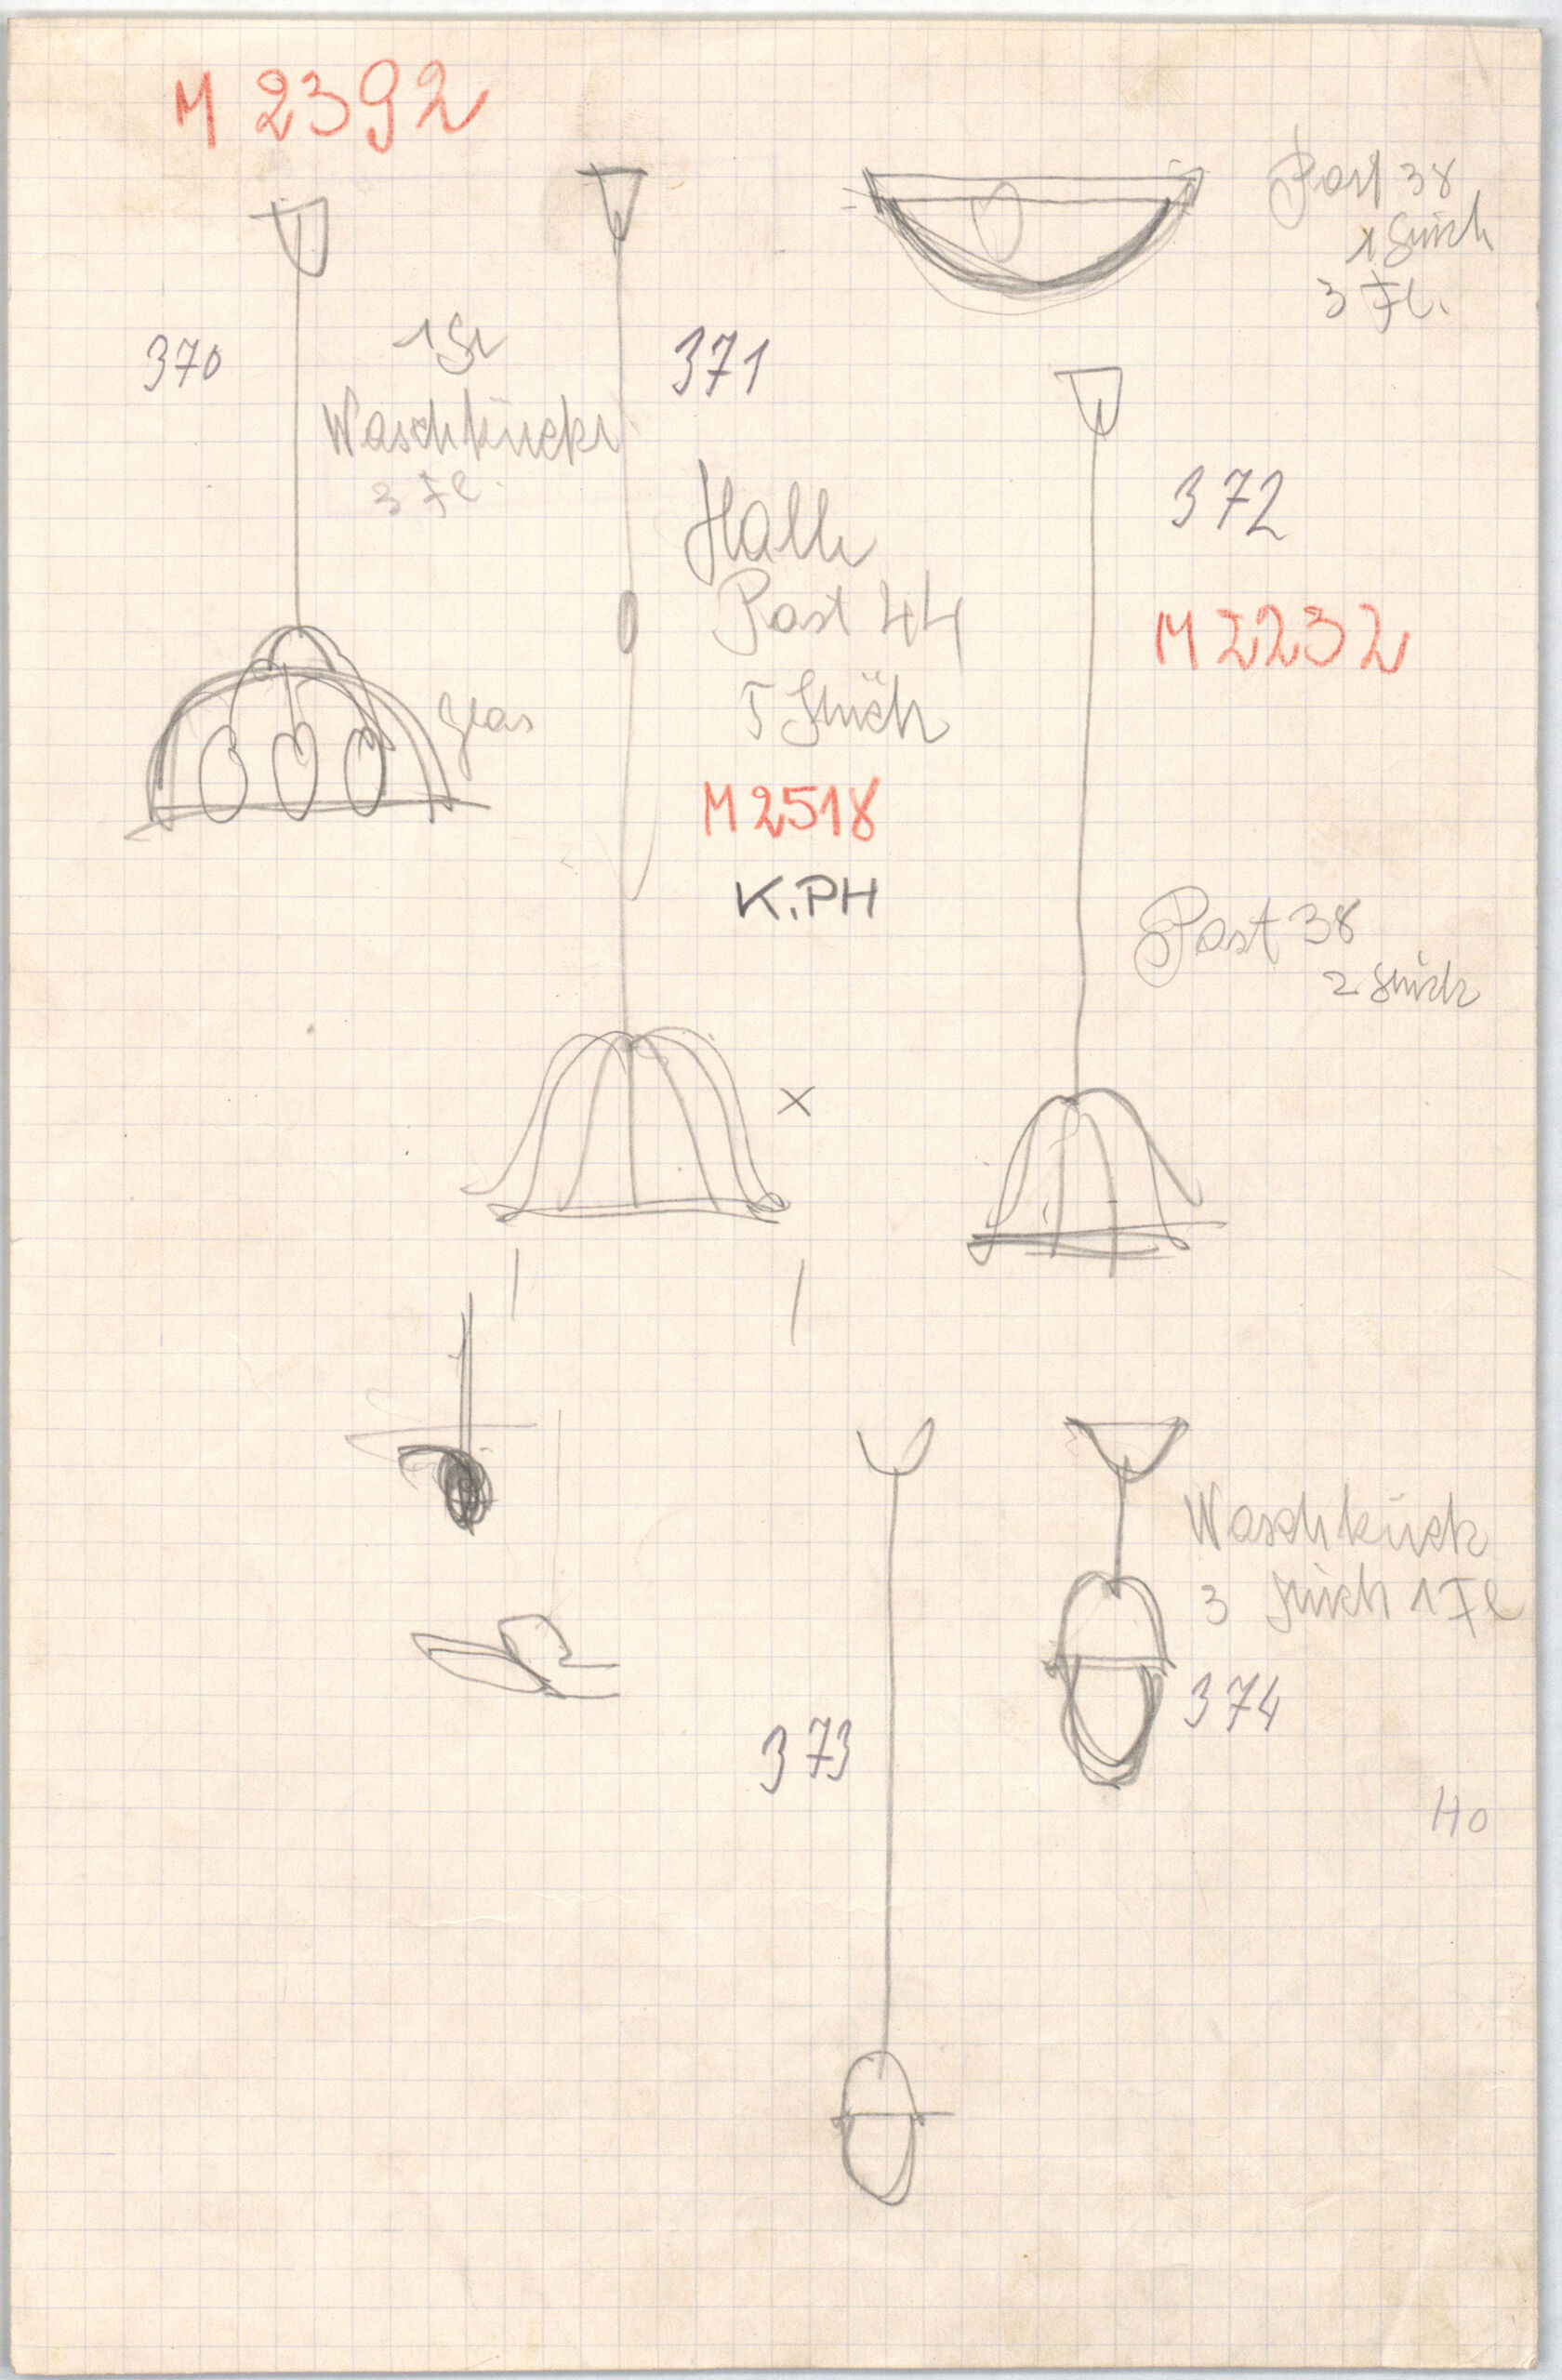 M 2392
Post 38
1 Stück
3 Fl.
370
1 St
Waschküche
3 Fl.
371
Halle
Post 44
5 Stück
M 2518
K.PH
372
M 2232
glas
Post 38
2 Stück
x
Waschküche
3 Stück 1 Fl
373
374
40